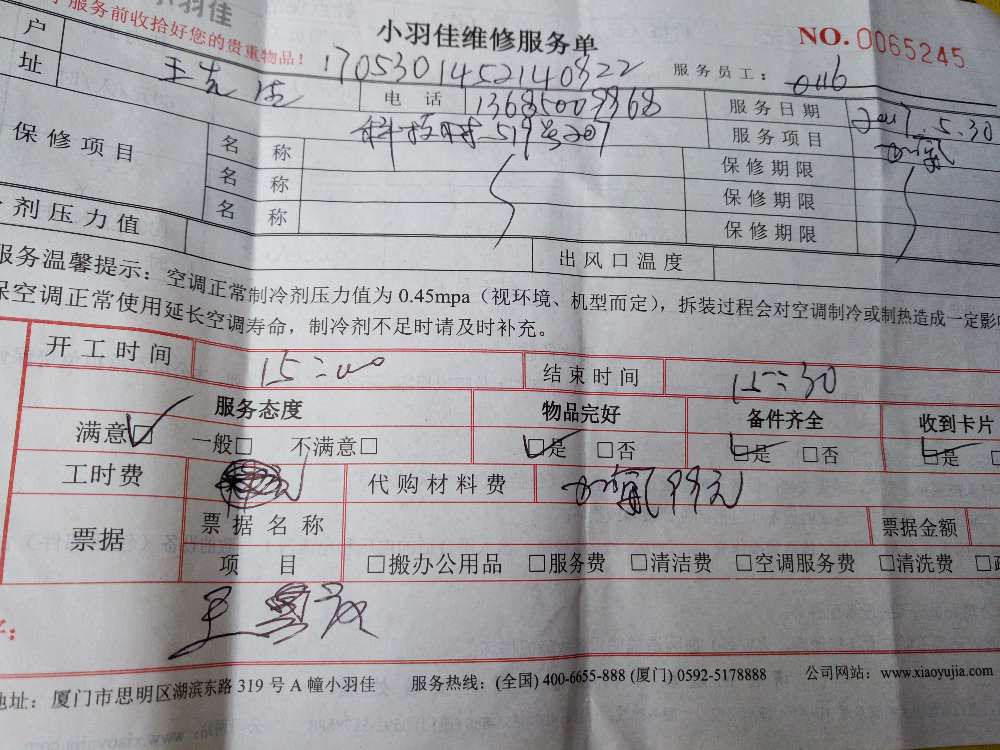 服务前收拾好您的贵重物品！
小羽佳维修服务单
NO. 0065245
1705301452140822
服务员工：
户 王先生 电话 服务日期 2017.5.30
址 519号207 服务项目 加氟
保修项目 名称 保修期限
名称 保修期限
名称 保修期限
剂压力值 出风口温度
服务温馨提示：空调正常制冷剂压力值为 0.45mpa（视环境、机型而定），拆装过程会对空调制冷或制热造成一定影
保空调正常使用延长空调寿命，制冷剂不足时请及时补充。
开工时间 15:00 结束时间 15:30
服务态度 物品完好 备件齐全 收到卡片
满意□ 一般□ 不满意□ □是 □否 □是 □否 □是
工时费 代购材料费 加氟99元
票据 票据名称 票据金额
项目 □搬办公用品 □服务费 □清洁费 □空调服务费 □清洗费
地址：厦门市思明区湖滨东路 319 号 A 幢小羽佳 服务热线：(全国) 400-6655-888 (厦门) 0592-5178888 公司网站：www.xiaoyujia.com